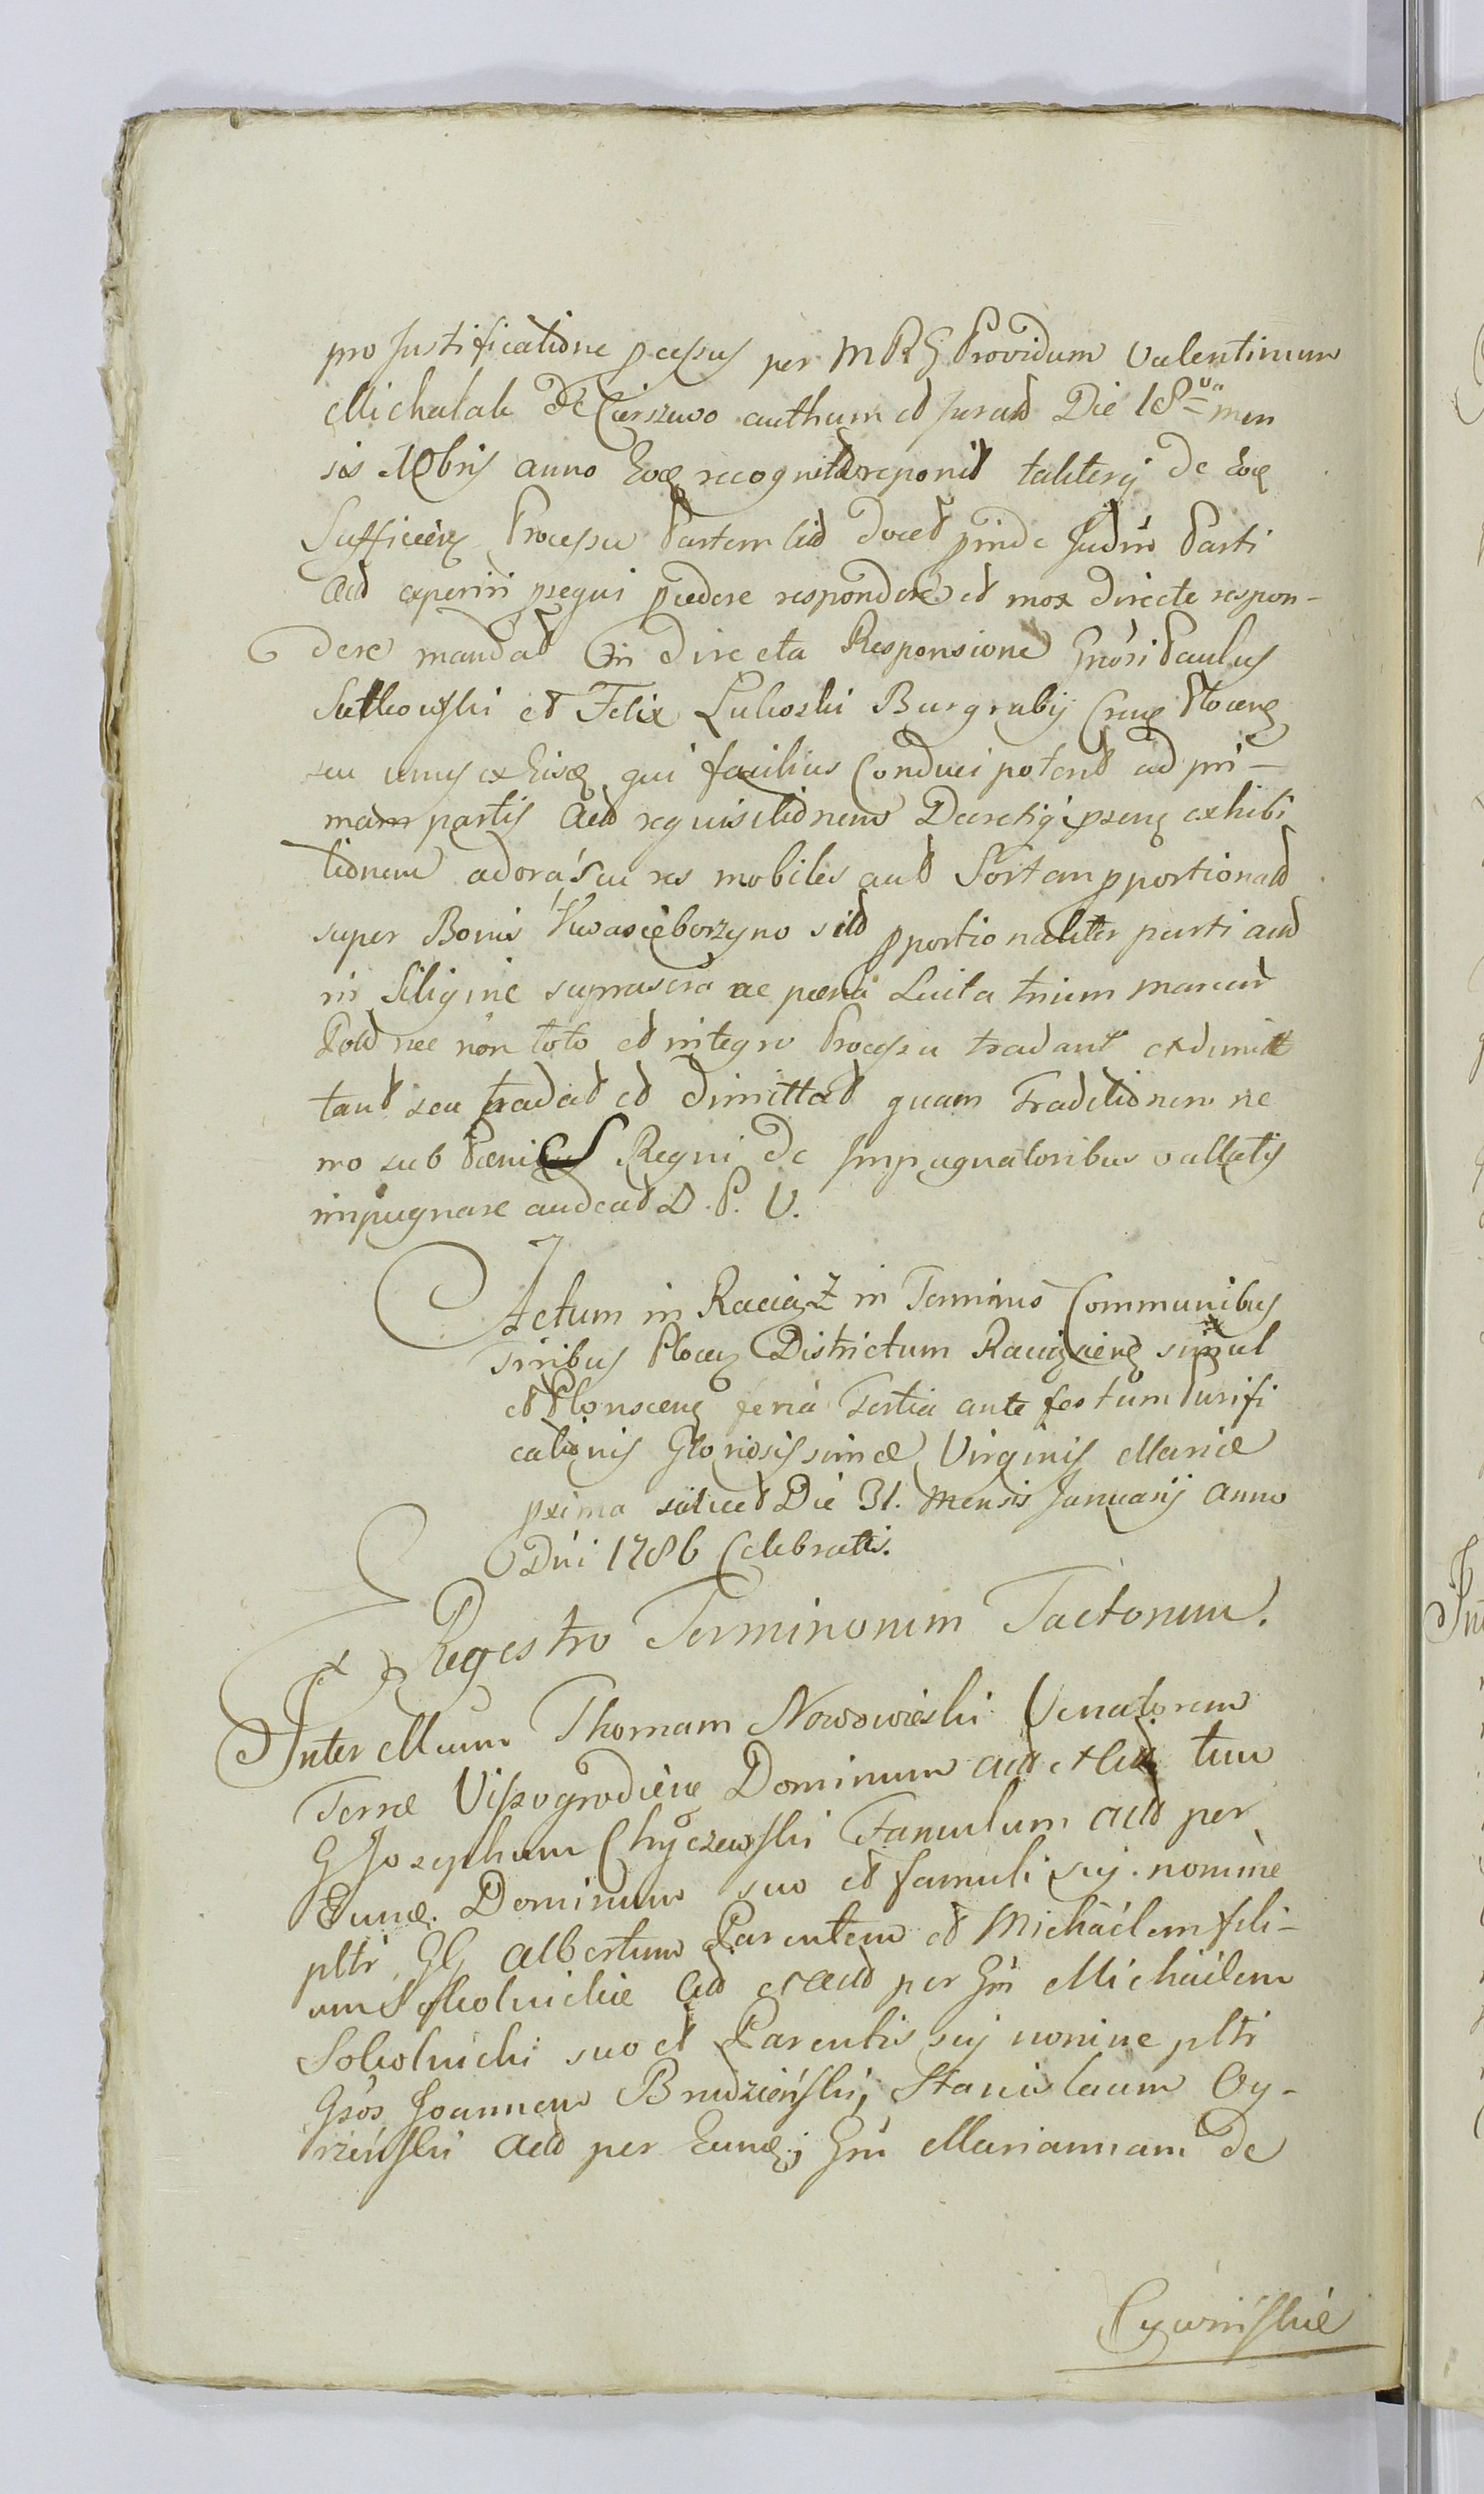 pro Justificatione pcessus per MRG Providum Valentinum
Michalak de Cierszewo authum et Jurat Die 18va men
sis 10bris anno Eoq recognit reponit taliterq de Eoq
Sufficien Processu Partem Cit docet pinde Judiu Parti
Act experiri psequi pcedere respondere et mox directe respon-
dere mandat in directa Responsione Gnosi Paulus
Sutkowski et Felix Lukoski Burgrabij Crneg Plocens
seu unus ex Eisq qui facilius Conduci poterit ad pri-
mam partis Act requisitionem Decretiq psens exhibi
tionem adora seu res mobiles aut Sortem pportionat
super Bonis Kwasieborzyno sit pportionaliter parti act
in Siligine suprascra ac pæna Luita trium marcar
Pold nec non toto et integro Processu tradant et dimitt
tant seu tradat et dimittat quam Traditionem ne
mo sub Pænis Regni de Impugnatoribus vallatis
impugnare audeat D. P. V.
Actum in Raciąż in Terminis Communibus
Trribus Plocen Districtum Raciązien simul
et Plonscens feria Tertia ante festum Purifi
cationis Gloriosissimæ Virginis Mariæ
pxima scilicet Die 31. Mensis Januarij Anno
Dni 1786 Celebratis.
Ex Regestro Terminorum Tactorum.
Inter Mcum Thomam Nowowieski Venatorem
Terræ Vissogrodien Dominum act et Cit tum
G Josephum Chyczewski Famulum act per
Eunq. Dominum suo et famuli sui nomine
pltr GG Albertum Parentem et Michaelem fili-
um Sokolnickie Cit et act per Gn Michaelem
Sokolnicki suo et Parentis sui nomine pltr
Gsos Joannem Brudzieński, Stanislaum Cy-
rzeński act per Eunq; Gn Mariannam de
Cywińskie